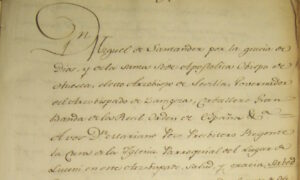 Dn Miguel de Santander por la gracia de
Dios, y de la Santa Sede Apostolica Obispo de
Huesca, electo Arzobispo de Sevilla, Governador
del Arzobispado de Zaragoza, Caballero Gran
Banda de la Real Orden de España &
A vos Dn Mariano Presbitero Regente
la Cura de la Iglesia Parroquial del Lugar de
en este Arzobispado, Salud y gracia. Sabed